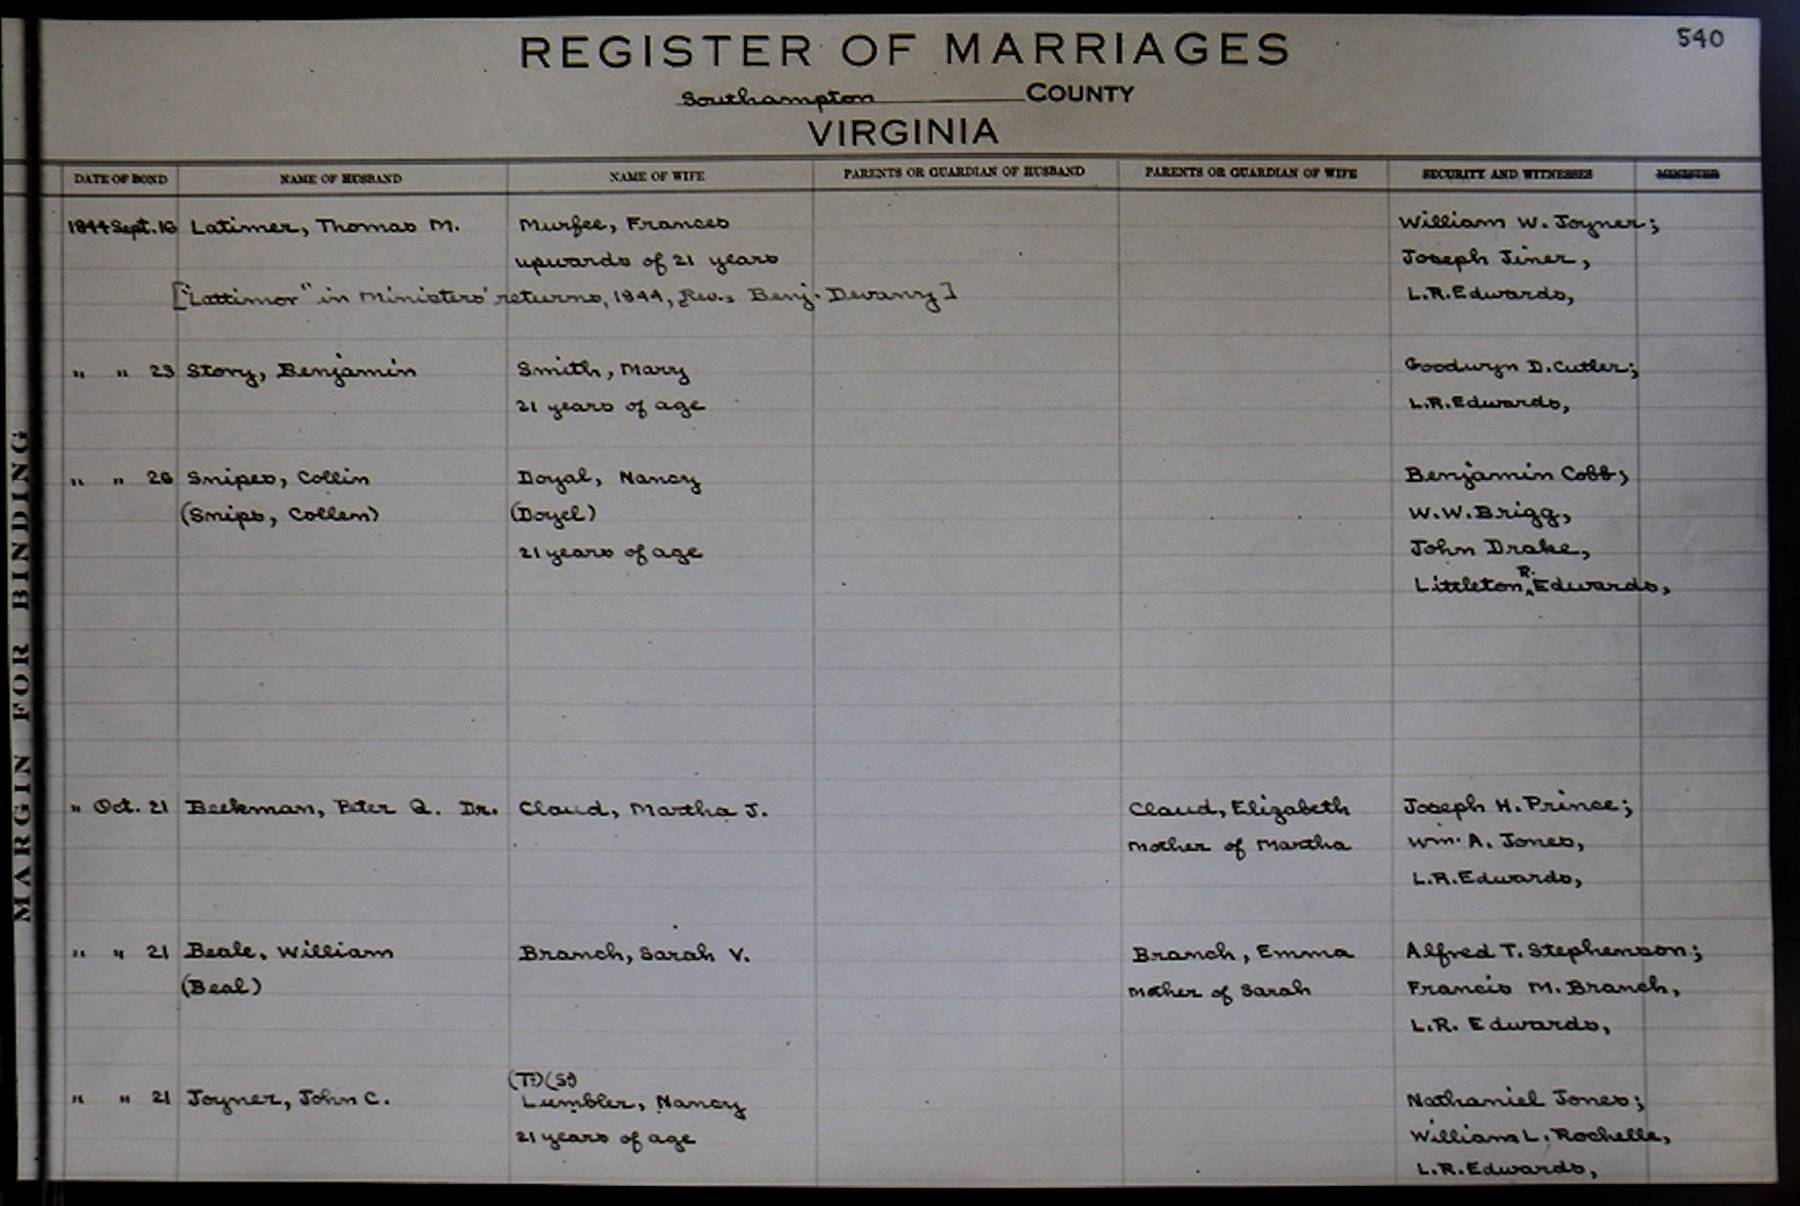 540
REGISTER OF MARRIAGES
Southampton COUNTY
VIRGINIA
DATE OF BOND NAME OF HUSBAND NAME OF WIFE PARENTS OR GUARDIAN OF HUSBAND PARENTS OR GUARDIAN OF WIFE SECURITY AND WITNESSES MINISTER
1844 Sept. 16 Latimer, Thomas M. Murfee, Frances William W. Joyner;
upwards of 21 years Joseph Jiner,
["Lattimor" in Ministers' returns, 1844, Rev. Benj. Devany] L.R. Edwards,
" " 23 Story, Benjamin Smith, Mary Goodwyn D. Cutler;
21 years of age L.R. Edwards,
" " 26 Snipes, Collin Doyal, Nancy Benjamin Cobb;
(Snips, Collen) (Doyel) W.W. Brigg,
21 years of age John Drake,
Littleton R. Edwards,
" Oct. 21 Beekman, Peter Q. Dr. Claud, Martha J. Claud, Elizabeth Joseph H. Prince;
mother of Martha Wm. A. Jones,
L.R. Edwards,
" " 21 Beale, William Branch, Sarah V. Branch, Emma Alfred T. Stephenson;
(Beal) mother of Sarah Francis M. Branch,
L.R. Edwards,
(T?) (S?)
" " 21 Joyner, John C. Lumbler, Nancy Nathaniel Jones;
21 years of age William L. Rochelle,
L.R. Edwards,
MARGIN FOR BINDING